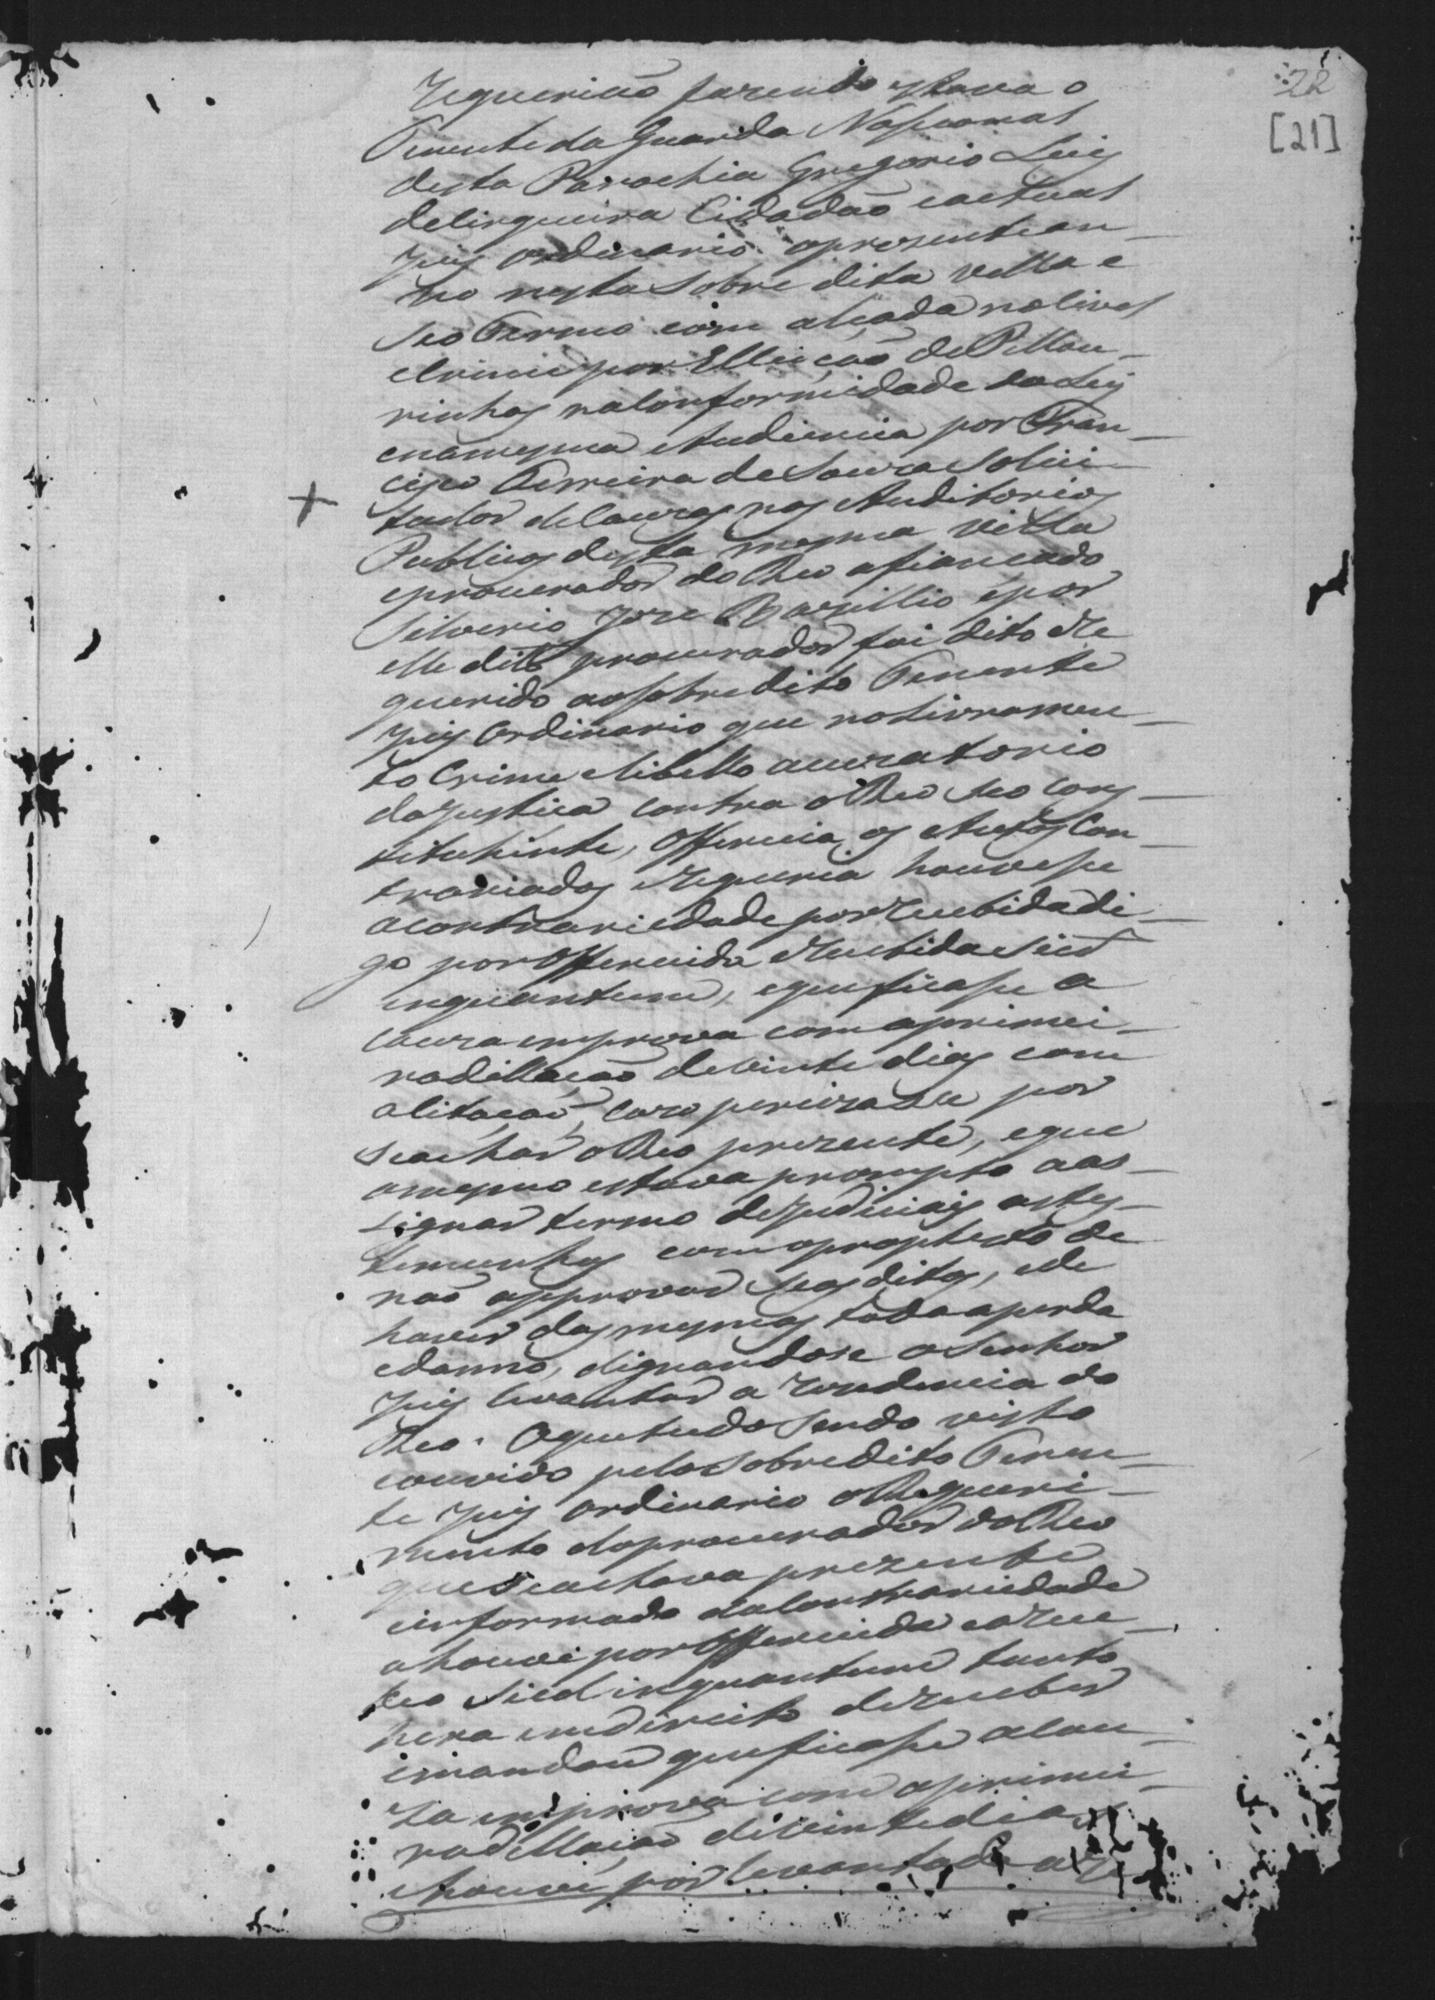 22
[21]
requerião fazendo estava o
Tenente da Guarda Nascional
desta Parochia Gregorio Luis
deSirqueira Cidadão eactual
Juis ordinario aprezentean
no nesta sobre dita villa e
seo Termo com alçada nolivel
eCrime por Elleição de Pillou-
rinhos naConformidade da Ley
enamesma Audiencia por Fran-
cisco Ferreira de Souza Solici-
tador deCauzas nos Auditorios
Publicos desta mesma villa
eprocurador do Reo afiancado
Silverio Joze Bazillio epor
elle dito procurador foi dito Re
querido aosobredito Tenente
Juis Ordinario que noLivramen-
to Crime eLibello acuzatorio
daJustica contra o Reo seo Cons-
tetuhinte, Offerecia os Autos Con-
trariados eRequeria houvesse
aContrariedade porrecebida di-
go por Offerecida eRecebida Sied
inquantum, eque ficasse a
Cauza emprova com aprimei-
radillação devinte dias com
aCitação, Cazo perciza da por
seachar o Reo prezente, eque
omesmo estava prompto aas-
signar termo deJudiciais astes-
temunhas com oprostesto de
não approvar seos ditos, ede
haver dos mesmos toda aperda
edanno, dignandose o Senhor
Juis levantar a rezidencia do
Reo. Oquetudo sendo visto
eouvido pelo sobredito Tenen-
te Juis ordinario o Requeri-
mento doprocurador do Reo
queseachava prezente
informado daContrariedade
ahouve por Offerecida earece-
beo Sied inquantum tanto
hera emdireito dereceber
emandou queficasse aCau-
za emprova com aprimei-
radillação devinte dias
ehouve por levantada a